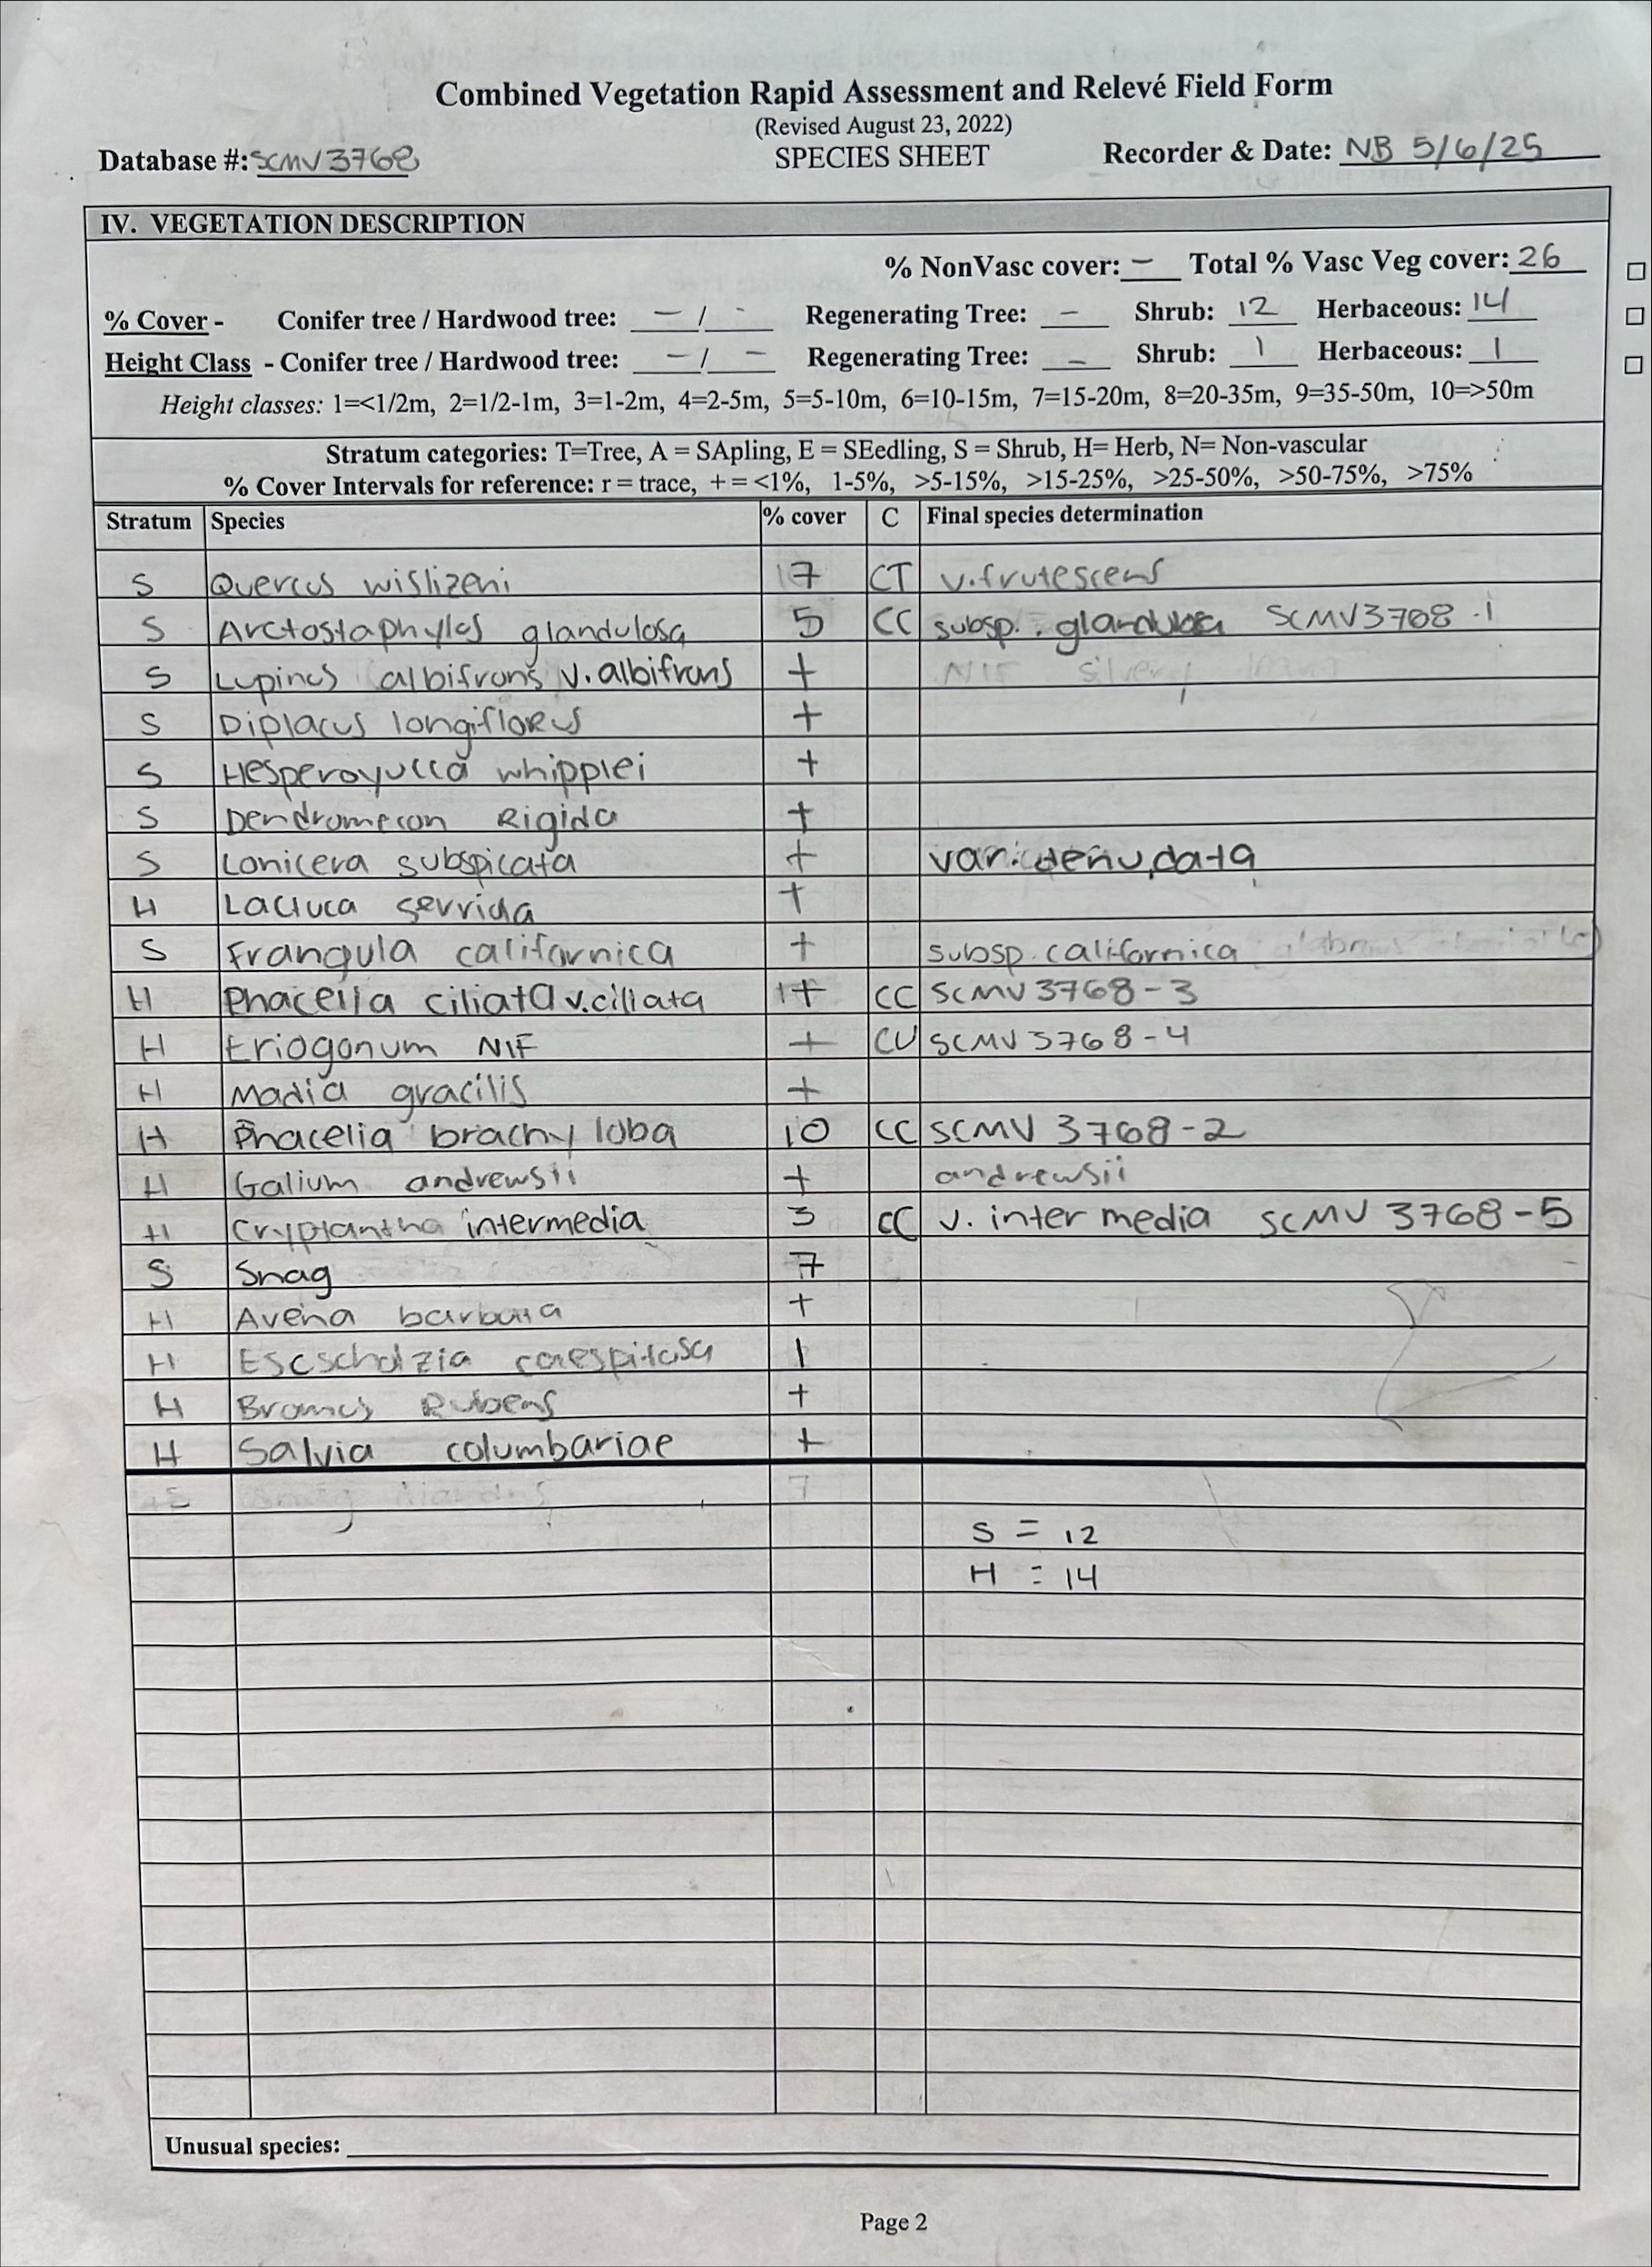 Combined Vegetation Rapid Assessment and Relevé Field Form
(Revised August 23, 2022)
Database #: SCMV3768 SPECIES SHEET Recorder & Date: NB 5/6/25
IV. VEGETATION DESCRIPTION
% NonVasc cover: – Total % Vasc Veg cover: 26
% Cover - Conifer tree / Hardwood tree: – / - Regenerating Tree: – Shrub: 12 Herbaceous: 14
Height Class - Conifer tree / Hardwood tree: – / – Regenerating Tree: – Shrub: 1 Herbaceous: 1
Height classes: 1=<1/2m, 2=1/2-1m, 3=1-2m, 4=2-5m, 5=5-10m, 6=10-15m, 7=15-20m, 8=20-35m, 9=35-50m, 10=>50m
Stratum categories: T=Tree, A = SApling, E = SEedling, S = Shrub, H= Herb, N= Non-vascular
% Cover Intervals for reference: r = trace, + = <1%, 1-5%, >5-15%, >15-25%, >25-50%, >50-75%, >75%
Stratum Species % cover C Final species determination
S Quercus wislizeni 7 CT v. frutescens
S Arctostaphylos glandulosa 5 CC subsp. glandulosa SCMV3768-1
S Lupinus albifrons v. albifrons + NIF silvery
S Diplacus longifloRus +
S Hesperoyucca whipplei +
S Dendromecon Rigida +
S Lonicera subspicata + var. denudata
H Lactuca serriola +
S Frangula californica + subsp. californica
H Phacelia ciliata v. ciliata + CC SCMV3768-3
H Eriogonum NIF + CU SCMV3768-4
H Madia gracilis +
H Phacelia brachyloba 10 CC SCMV 3768-2
H Galium andrewsii + andrewsii
H Cryptantha intermedia 3 CC v. intermedia SCMV 3768-5
S Snag 7
H Avena barbata +
H Escscholzia caespitosa 1
H Bromus Rubens +
H Salvia columbariae +
7
S = 12
H = 14
Unusual species:
Page 2